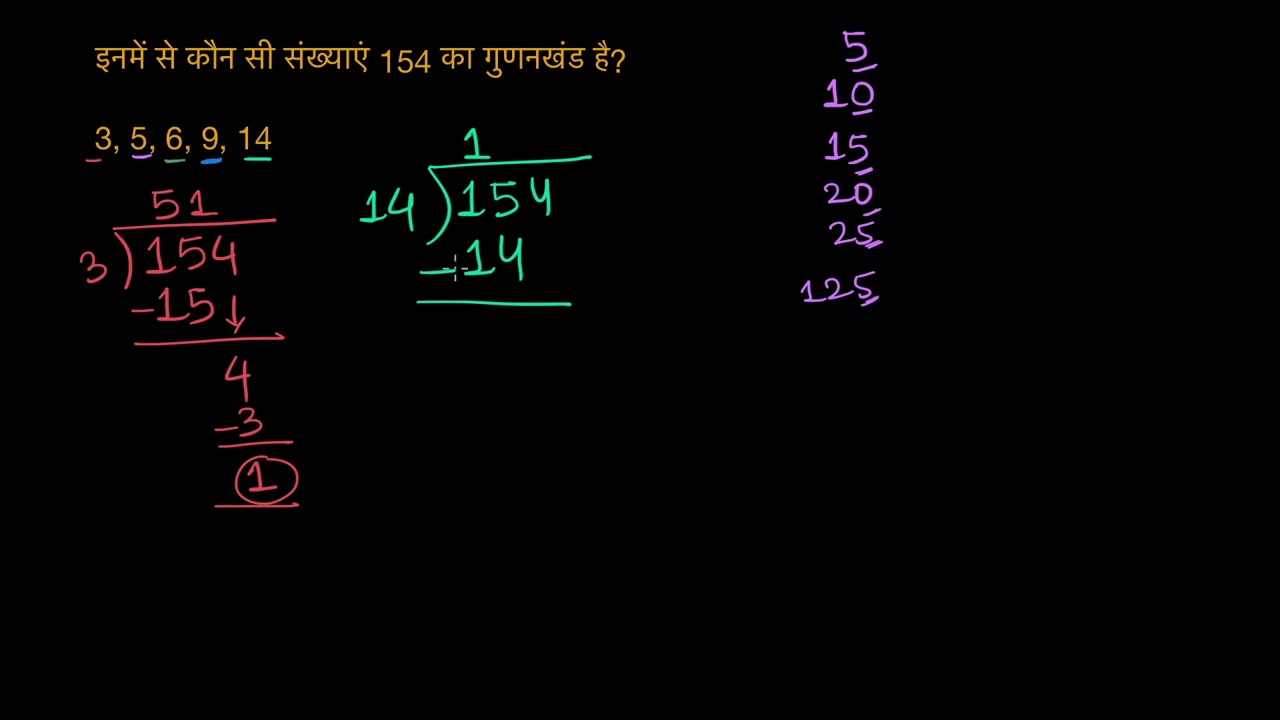 इनमें से कौन सी संख्याएं 154 का गुणनखंड है?
3, 5, 6, 9, 14
51
3 ) 154
-15 ↓
4
-3
1
1
14 ) 154
-14
5
10
15
20
25
125